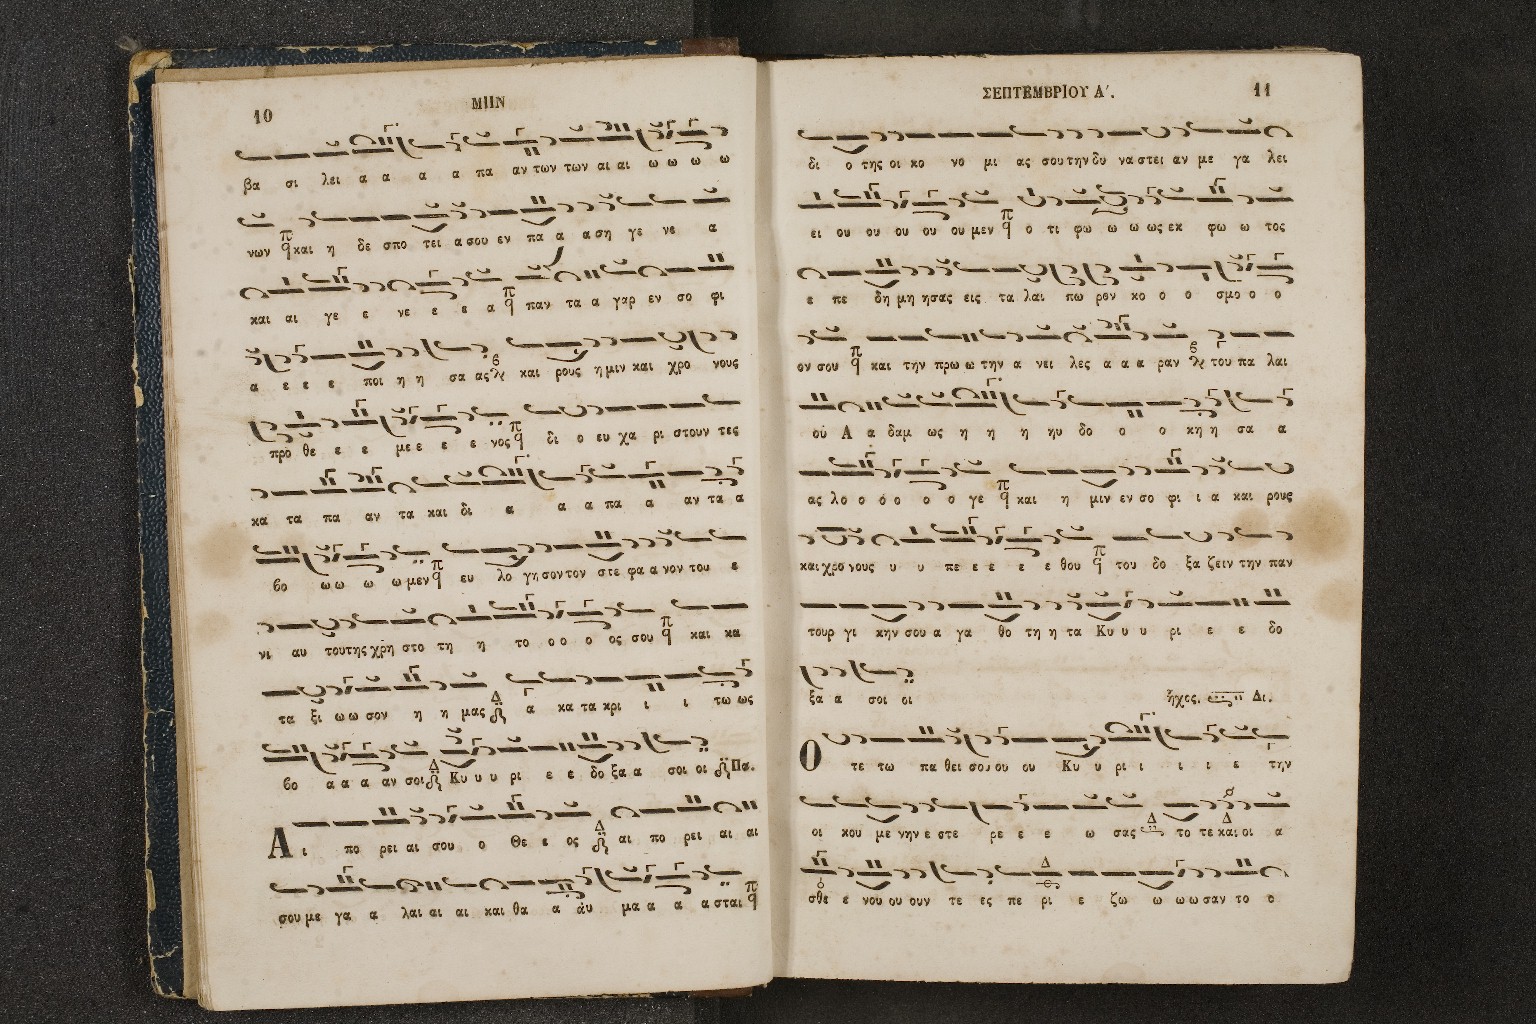 10
ΜΗΝ
βα σι λει α α α α πα αν των των αι αι ω ω ω ω
νων και η δε σπο τει α σου εν πα α α ση γε νε α
και αι γε ε νε ε ε α παν τα α γαρ εν σο φι
α ε ε ε ποι η η σα ας και ρους η μιν και χρο νους
προ θε ε ε με ε ε ε νος δι ο ευ χα ρι στουν τες
κα τα πα αν τα και δι α α α πα α αν τα α
βο ω ω ω ω μεν ευ λο γη σον τον στε φα α νον του ε
νι αυ του της χρη στο τη η το ο ο ο ος σου και κα
τα ξι ω ω σον η η μας α κα τα κρι ι ι τω ως
βο α α α αν σοι Κυ υ υ ρι ε ε δο ξα α σοι οι Πα.
Α ι πο ρει αι σου ο Θε ε ος αι πο ρει αι αι
σου με γα α λαι αι αι και θα α άυ μα α α α σται
ΣΕΠΤΕΜΒΡΙΟΥ Α΄.
11
δι ο της οι κο νο μι ας σου την δυ να στει αν με γα λει
ει ου ου ου ου ου μεν ο τι φω ω ω ως εκ φω ω τος
ε πε δη μη η σας εις τα λαι πω ρον κο ο ο σμο ο ο
ον σου και την πρω ω την α νει λες α α α ραν του πα λαι
ού Α α δαμ ως η η η ηυ δο ο ο κη η σα α
ας λο ο ό ο ο ο γε και η μιν εν σο φι ι α και ρους
και χρο νους υ υ πε ε ε ε ε θου του δο ξα ζειν την παν
τουρ γι κην σου α γα θο τη η τα Κυ υ υ ρι ε ε δο
ξα α σοι οι ἦχος. Δι.
Ο τε τω πα θει σου ου ου Κυ υ ρι ι ι ι ε την
οι κου με νην ε στε ρε ε ε ω σας το τε και οι α
σθε ε νου ου ουν τε ες πε ρι ε ζω ω ω ω σαν το ο